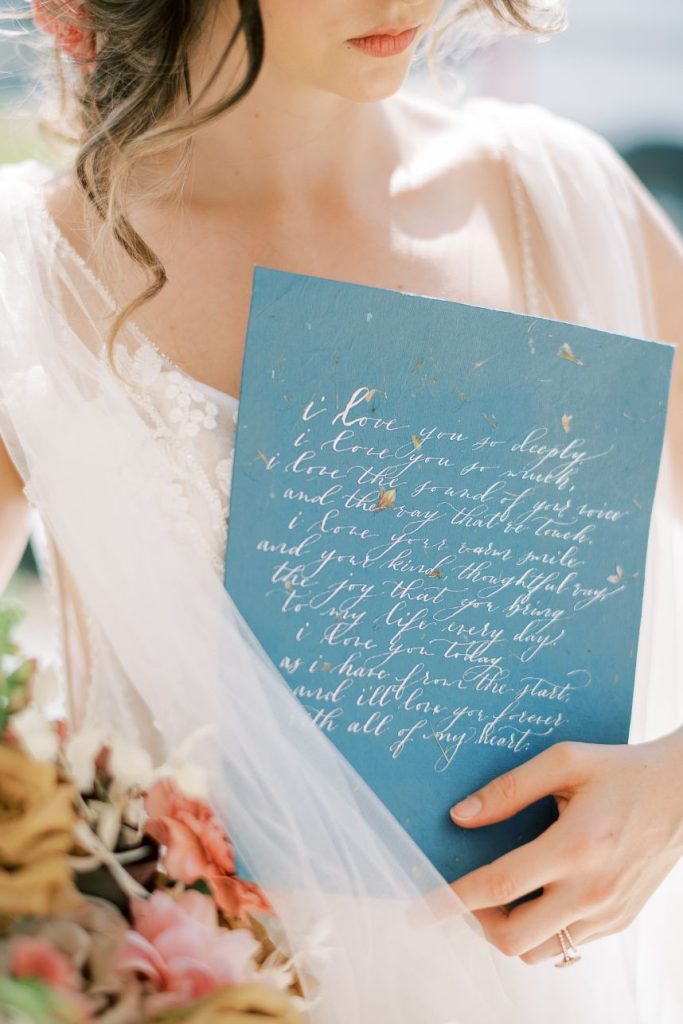 i love you so deeply
i love you so much,
i love the sound of your voice
and the way that we touch.
i love your warm smile
and your kind, thoughtful way,
the joy that you bring
to my life every day.
i love you today
as i have from the start,
and i'll love you forever
with all of my heart.